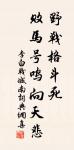 野战格斗死
败马号鸣向天悲
李白战城南词典网集